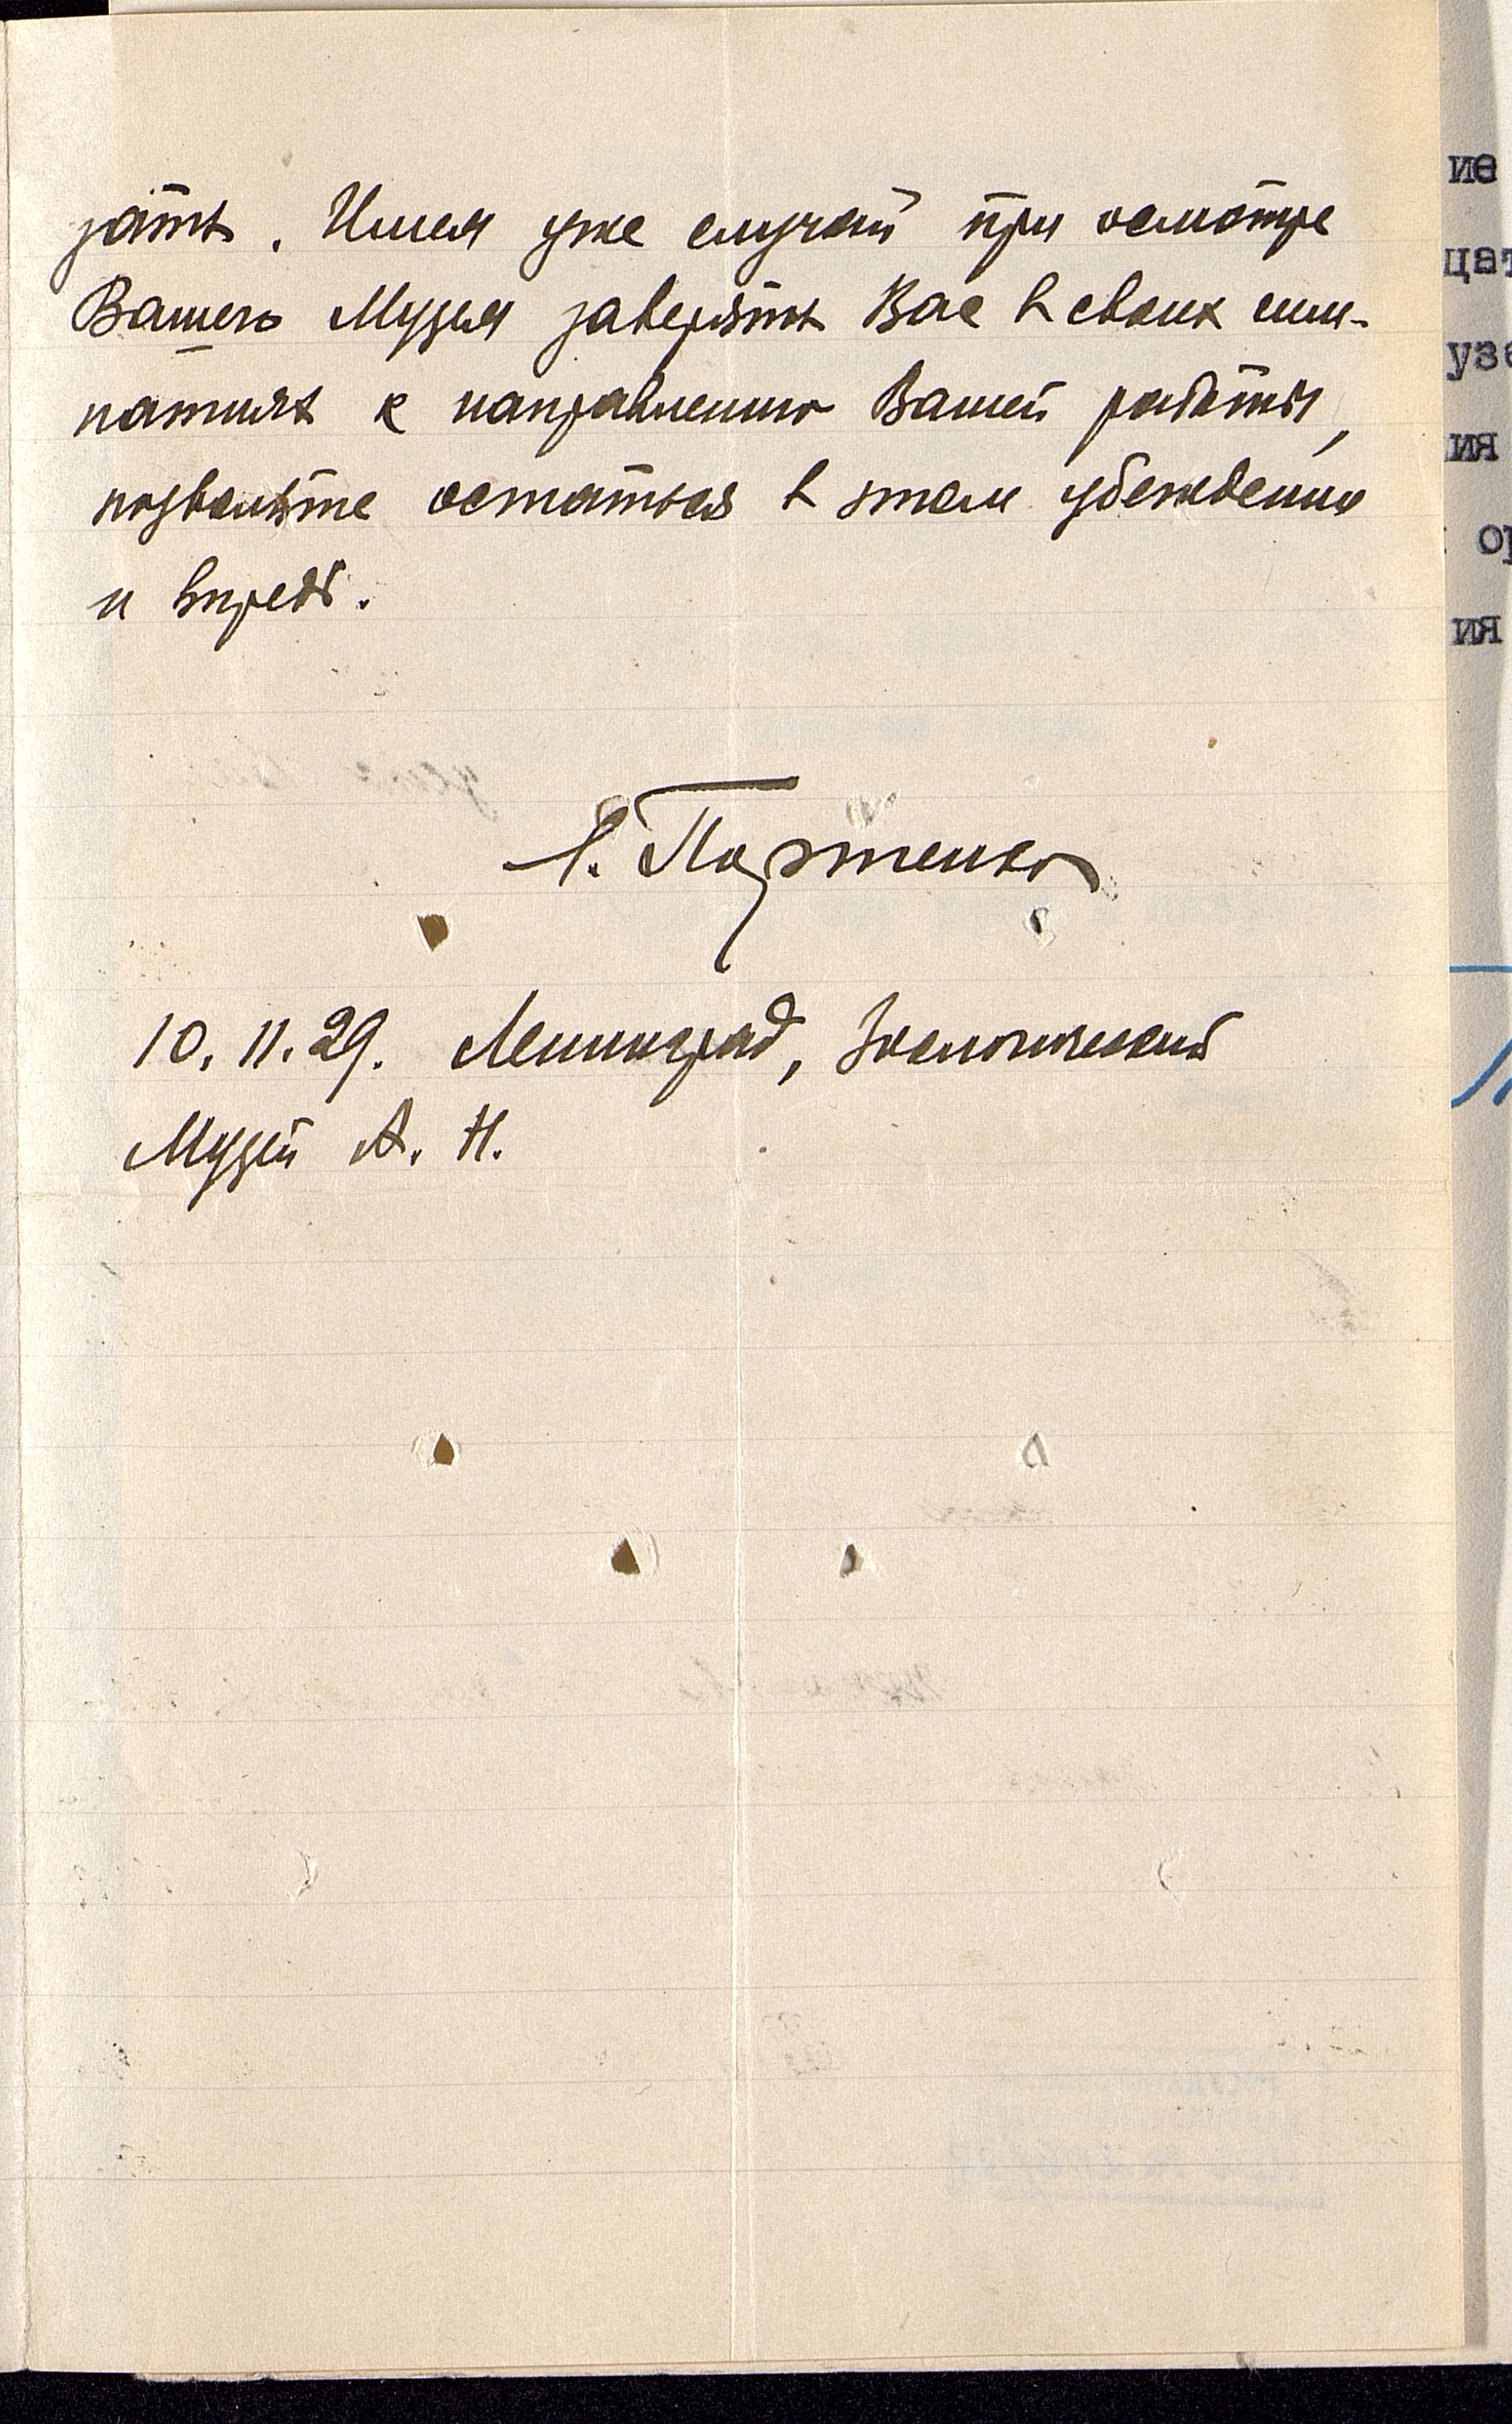 зать. Имея уже случай при осмотре
Вашего Музея заверять Вас в своих сим-
патиях к направлению Вашей работы,
позвольте остаться в этом убеждении
и впредь.
Л. Портенко
10. 11. 29. Ленинград, Зоологический
Музей А. Н.
ие
цат
узе
ия
ор
ия